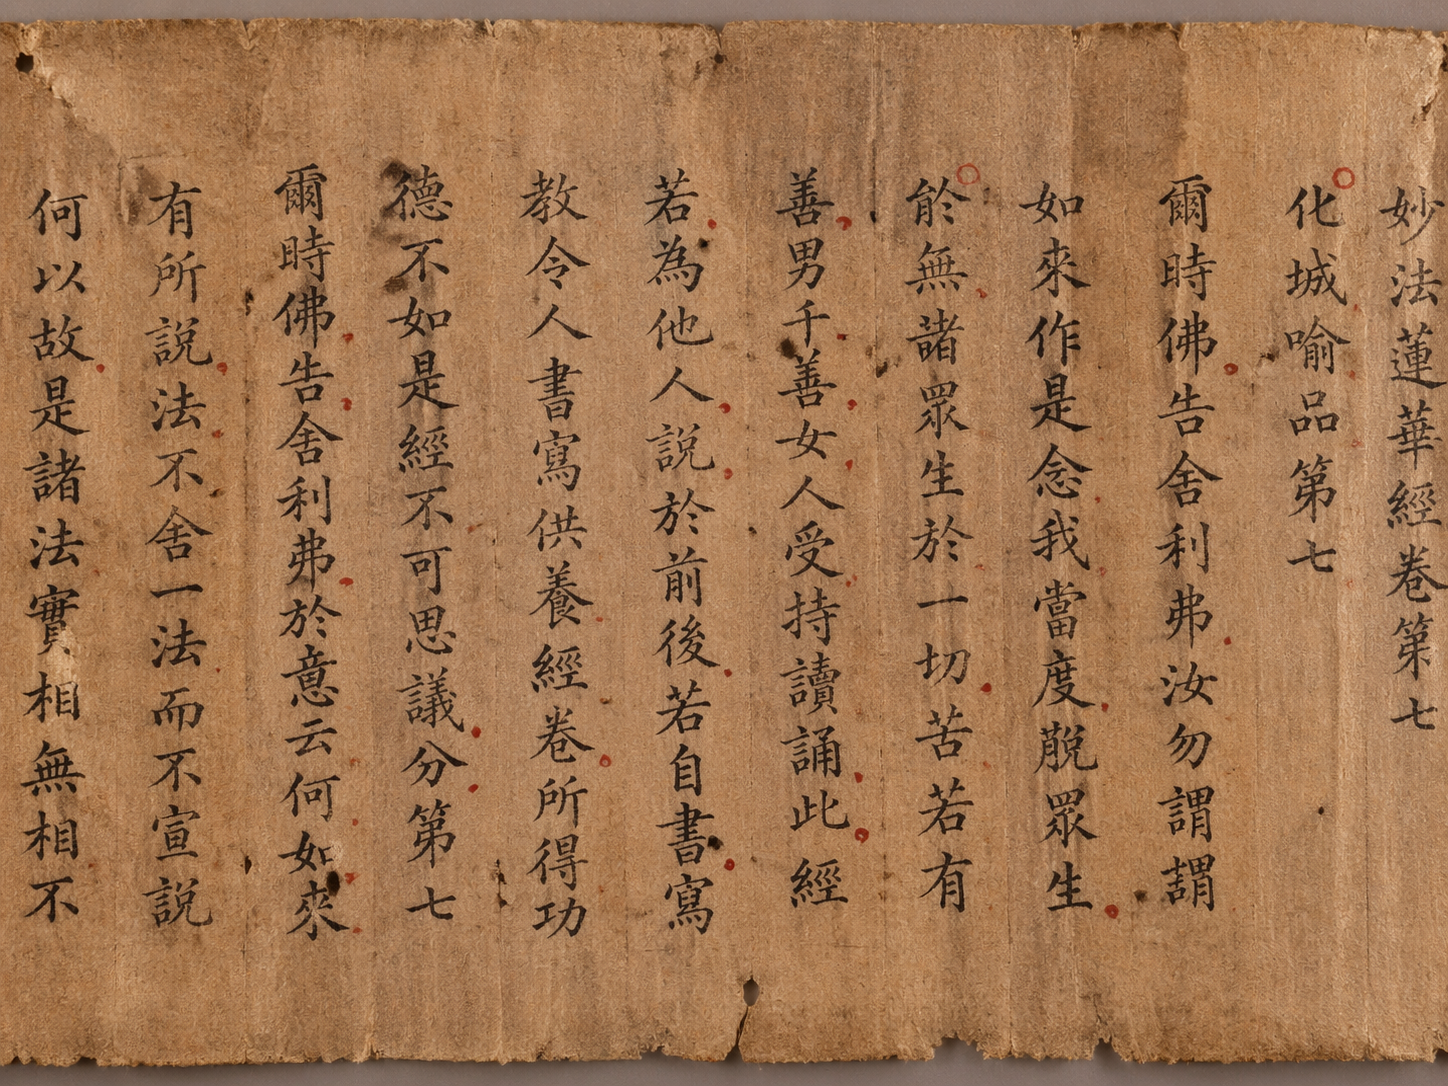 妙法蓮華經卷第七
化城喻品第七
爾時佛告舍利弗汝勿謂謂
如來作是念我當度脫眾生
能無諸眾生於一切苦若有
善男千善女人受持讀誦此經
若為他人說於前後若自書寫
教令人書寫供養經卷所得功
德不如是經不可思議分第七
爾時佛告舍利弗於意云何如來
有所説法不舍一法而不宣説
何以故是諸法實相無相不